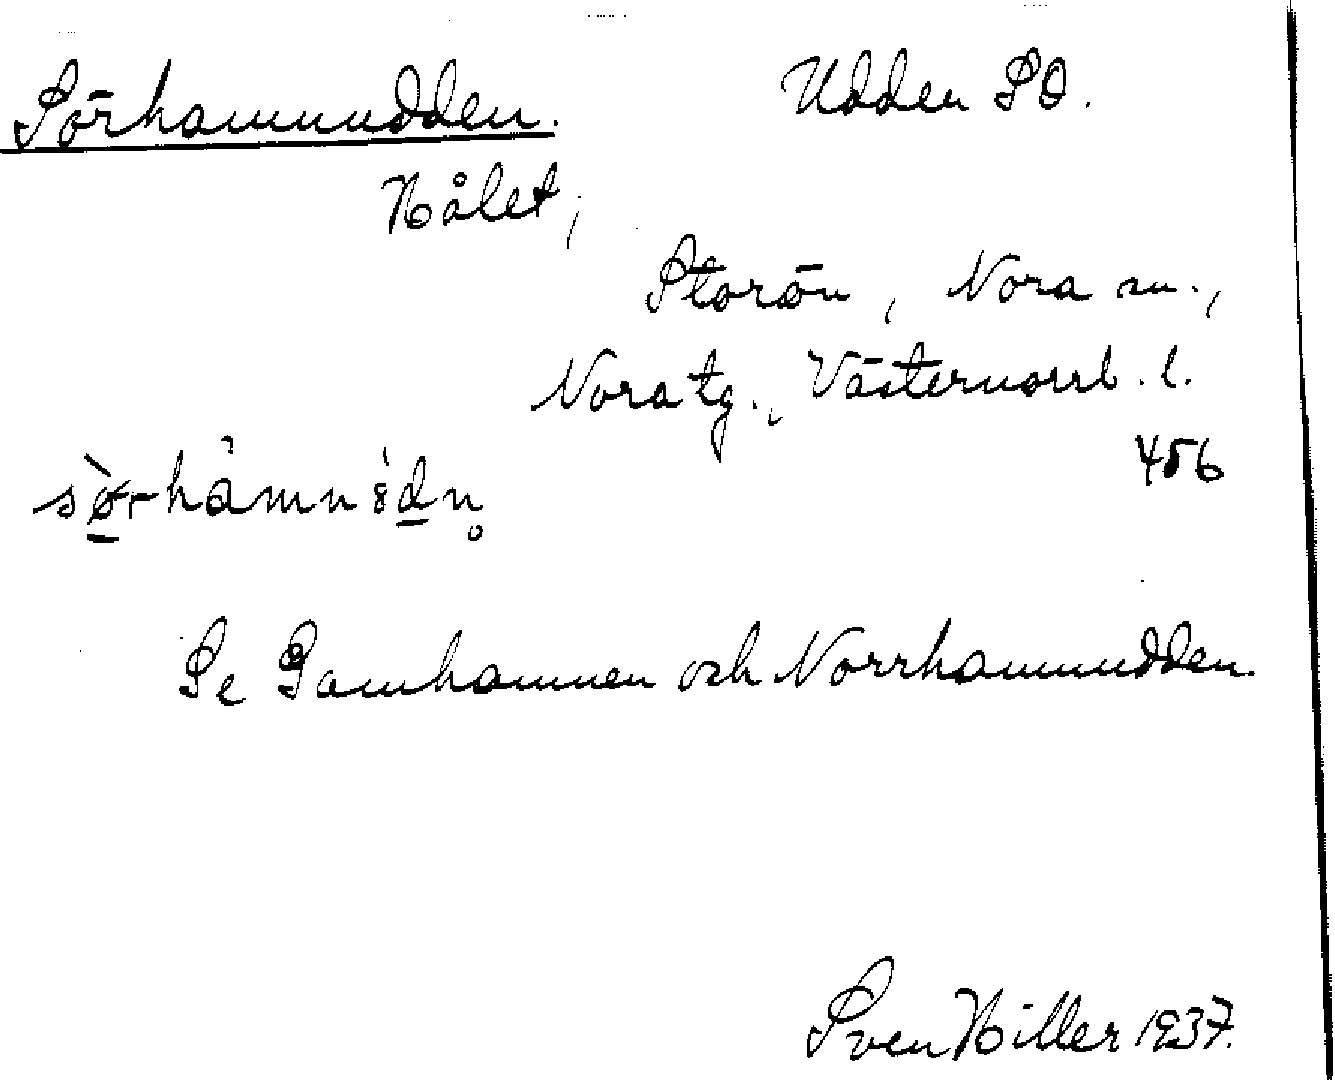 Sörhamnudden. Udden SO.
Hålet,
Storön, Nora sn.,
Nora tg., Västernorrl. l.
456
sø̀rhàmnȣ́dn̥
Se Gamhamnen och Norrhamnudden.
Sven Hiller 1937.